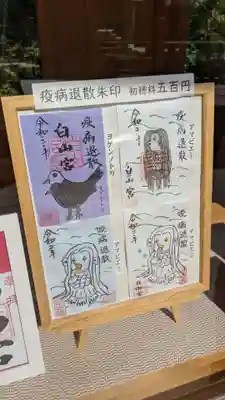 疫病退散朱印 初穂料五百円
疫病退散
ヨゲンノトリ
白山宮
令和二年
アマビエ
疫病退散
白山宮
令和二年
アマビエ
疫病退散
令和二年
アマビエ
疫病退散
令和二年